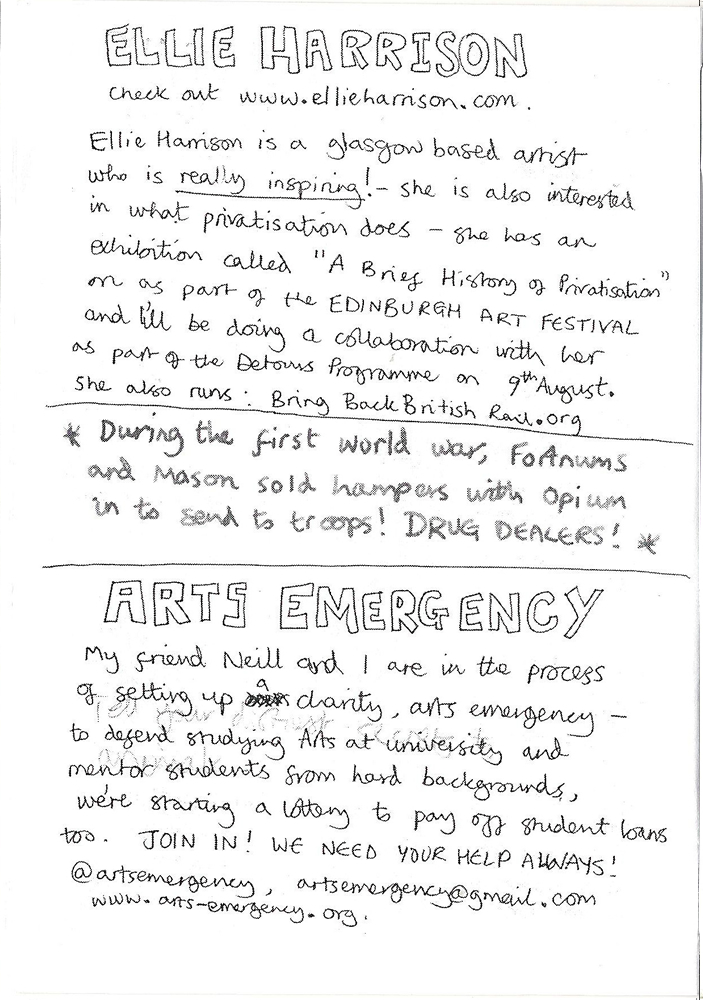 ELLIE HARRISON
check out www.ellieharrison.com.
Ellie Harrison is a glasgow based artist
who is really inspiring! - she is also interested
in what privatisation does - she has an
exhibition called "A Brief History of Privatisation"
on as part of the EDINBURGH ART FESTIVAL
and I'll be doing a collaboration with her
as part of the Detours Programme on 9th August.
She also runs: Bring Back British Rail.org
* During the first world war, FoAnums
and Mason sold hampers with Opium
in to send to troops! DRUG DEALERS! *
ARTS EMERGENCY
My friend Neill and I are in the process
of setting up a charity, arts emergency -
to defend studying Arts at university and
mentor students from hard backgrounds,
we're starting a lottery to pay off student loans
too. JOIN IN! WE NEED YOUR HELP ALWAYS!
@artsemergency, artsemergency@gmail.com
www.arts-emergency.org.